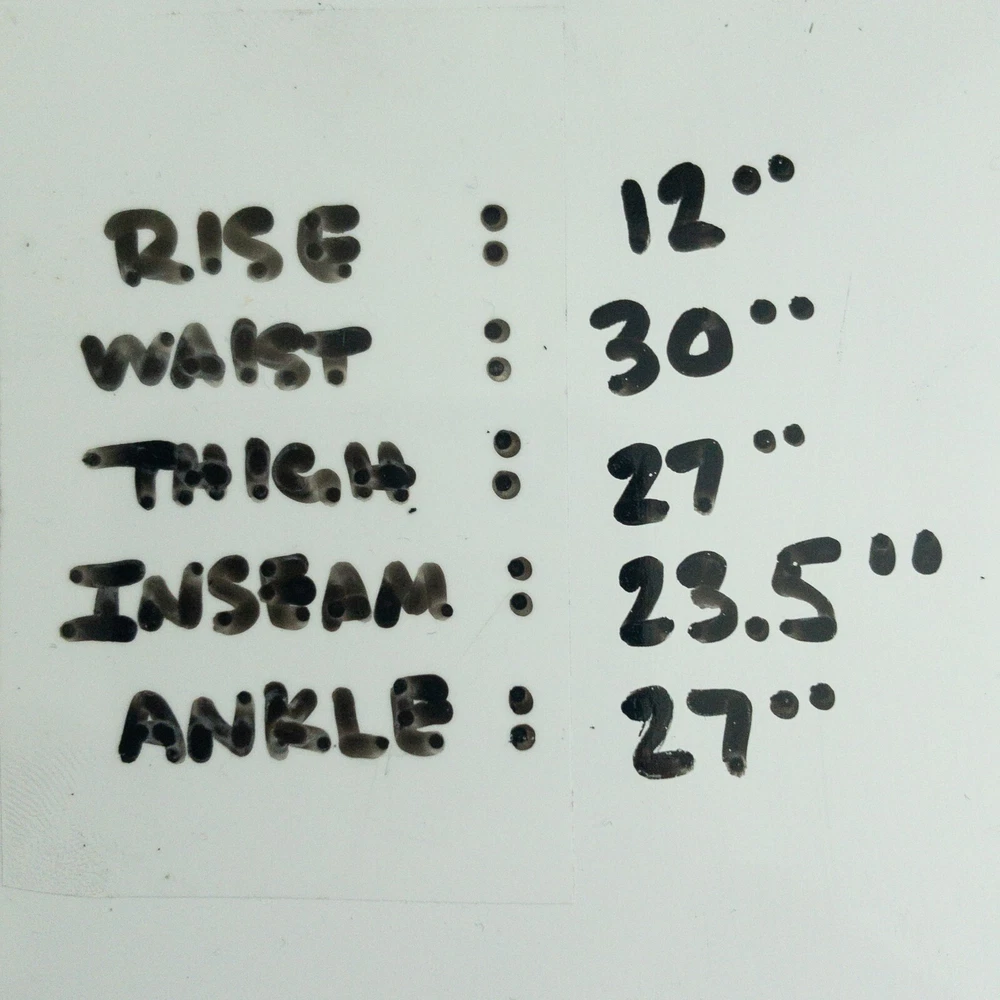 RISE : 12"
WAIST : 30"
THIGH : 27"
INSEAM : 23.5"
ANKLE : 27"